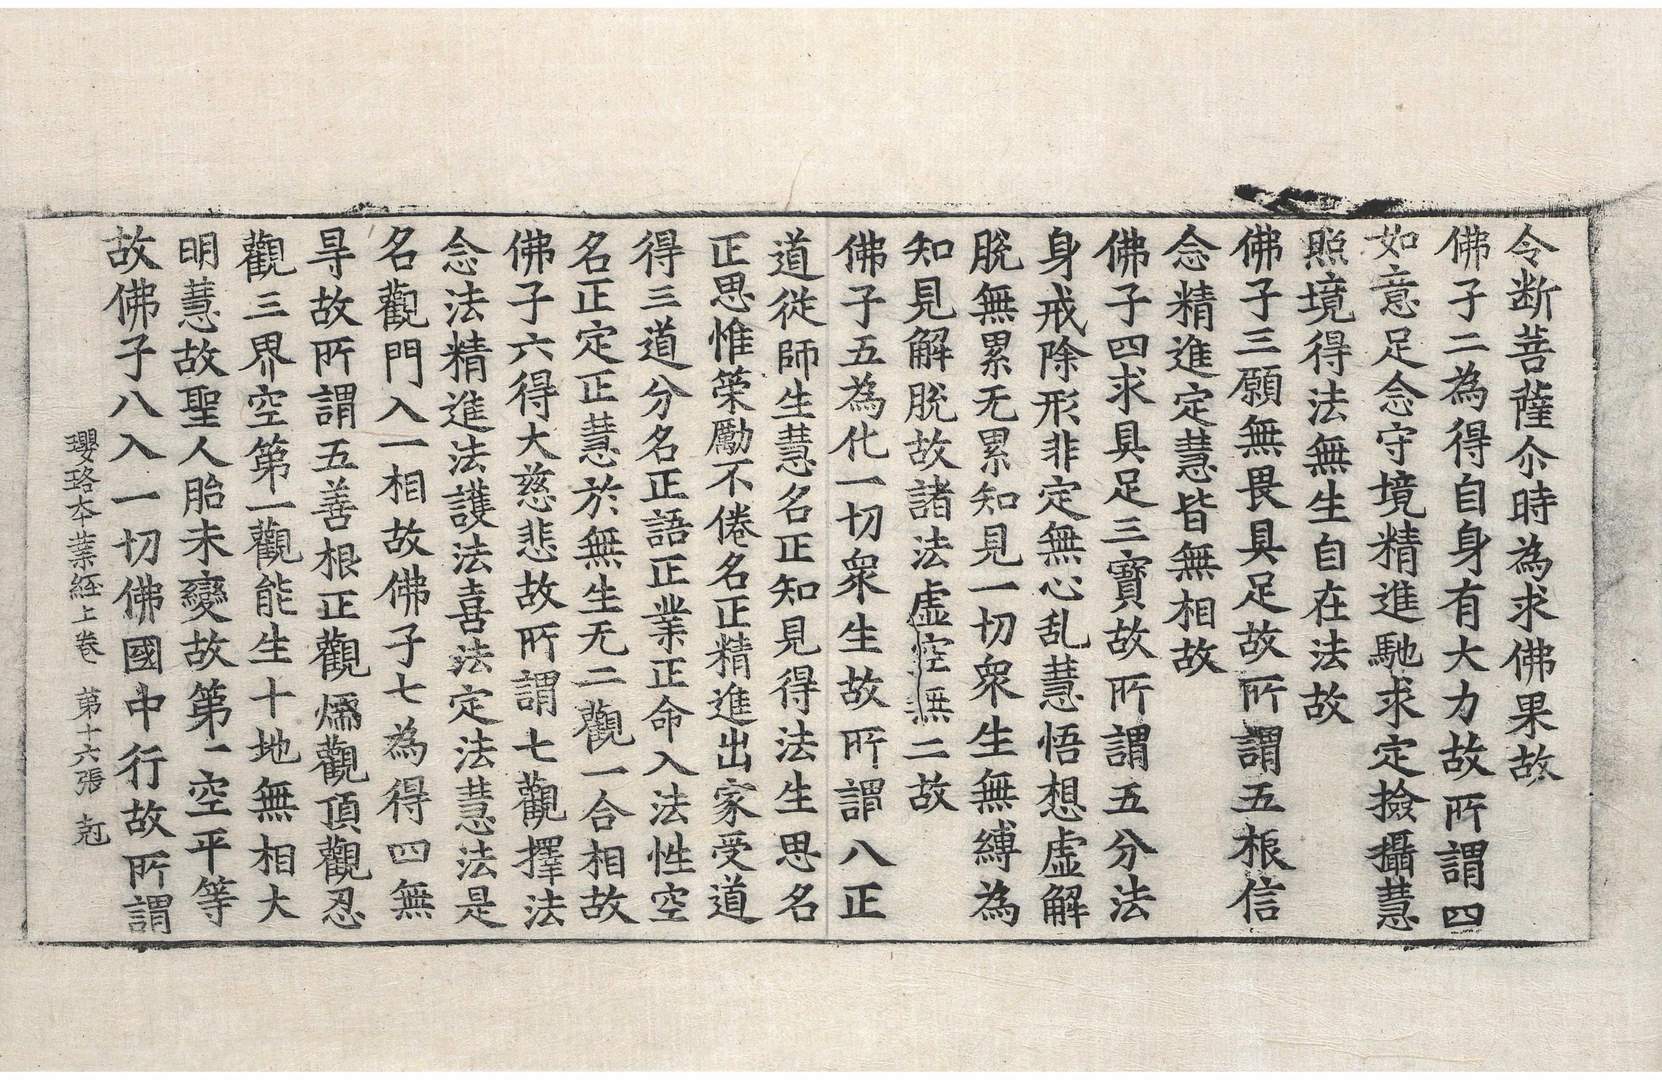 令断菩薩尒時為求佛果故
佛子二為得自身有大力故所謂四
如意足念守境精進馳求定撿攝慧
照境得法無生自在法故
佛子三願無畏具足故所謂五根信
念精進定慧皆無相故
佛子四求具足三寶故所謂五分法
身戒除形非定無心乱慧悟想虚解
脫無累无累知見一切衆生無縛為
知見解脫故諸法虚空無二故
佛子五為化一切衆生故所謂八正
道從師生慧名正知見得法生思名
正思惟榮勵不倦名正精進出家受道
得三道分名正語正業正命入法性空
名正定正慧於無生无二觀一合相故
佛子六得大慈悲故所謂七觀擇法
念法精進法護法喜法定法慧法是
名觀門入一相故佛子七為得四無
㝵故所謂五善根正觀煗觀頂觀忍
觀三界空第一觀能生十地無相大
明慧故聖人胎未變故第一空平等
故佛子八入一切佛國中行故所謂
瓔珞本業経上卷 第十六張